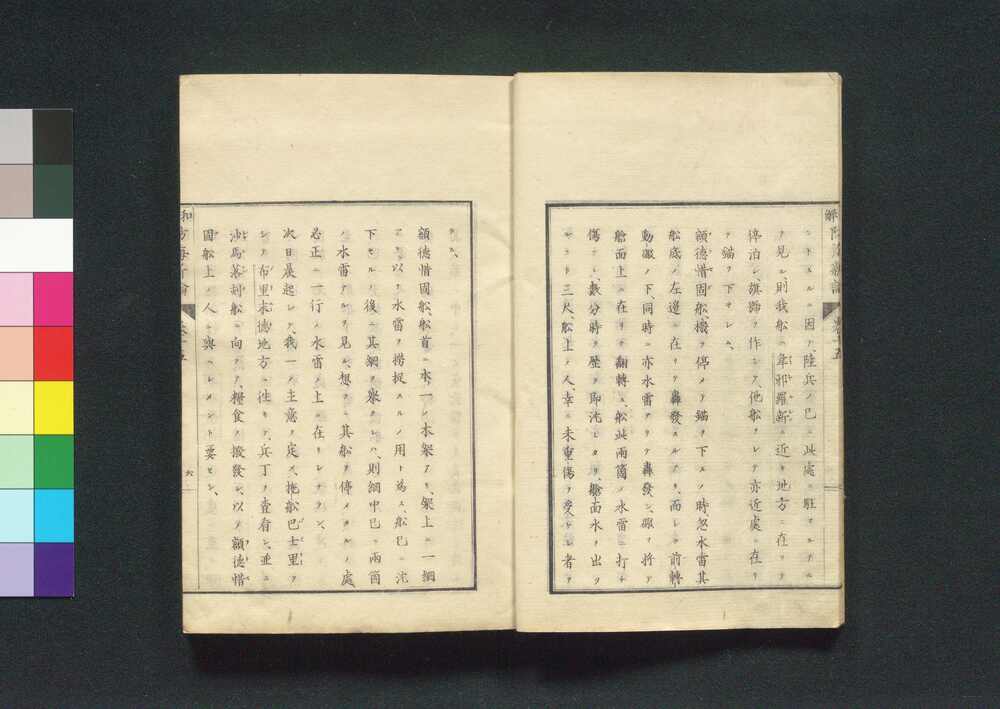 シトスルニ因テ、陸兵ノ已ニ此處ニ駐マルアル
ヲ見シ、則我船ヲ韋邪羅斯ニ近キ地方ニ在リテ
停泊シ、旗歸ヲ作シテ、他船ヲシテ亦近處ニ在リ
テ錨ヲ下サシム、
額德惜固船、機ヲ停メテ錨ヲ下スノ時忽水雷其
船底ノ左邉ニ在リテ轟發スルアリ、而シテ前轉
動輙ノ下、同時ニ亦水雷アリテ轟發シ、
艙面上ニ在リテ翻轉ス、船此兩箇ノ水雷ニ打チ
傷ラレ、數分時ヲ歴テ即沈ミタリ、艙面水ヲ出ヅ
ルコト三尺、船上ノ人、幸ニ未重傷ヲ受ケシ者ア
ラス、
額德惜固船、船首ニ本一ノ木架アリ、架上ニ一綱
アリ以テ水雷ヲ撈捉スルノ用ト為ス、船已ニ沈
下セルノ後ニ其綱ヲ擧クレハ、則綱中已ニ兩箇
ノ水雷アルヲ見ル、想フニ其船ヲ停メタルノ處
必正ニ一行ノ水雷ノ上ニ在リシナラン、
次日晨起シテ、我一ノ主意ヲ定メ、拖船巴士里ヲ
シテ布里末德地方ニ往キテ、兵丁ヲ査看シ、並ニ
沙馬落刻船ニ向テ、糧食ヲ撥發シ、以テ額德惜
固船上ノ人ニ與ヘシメント要セシ、
六